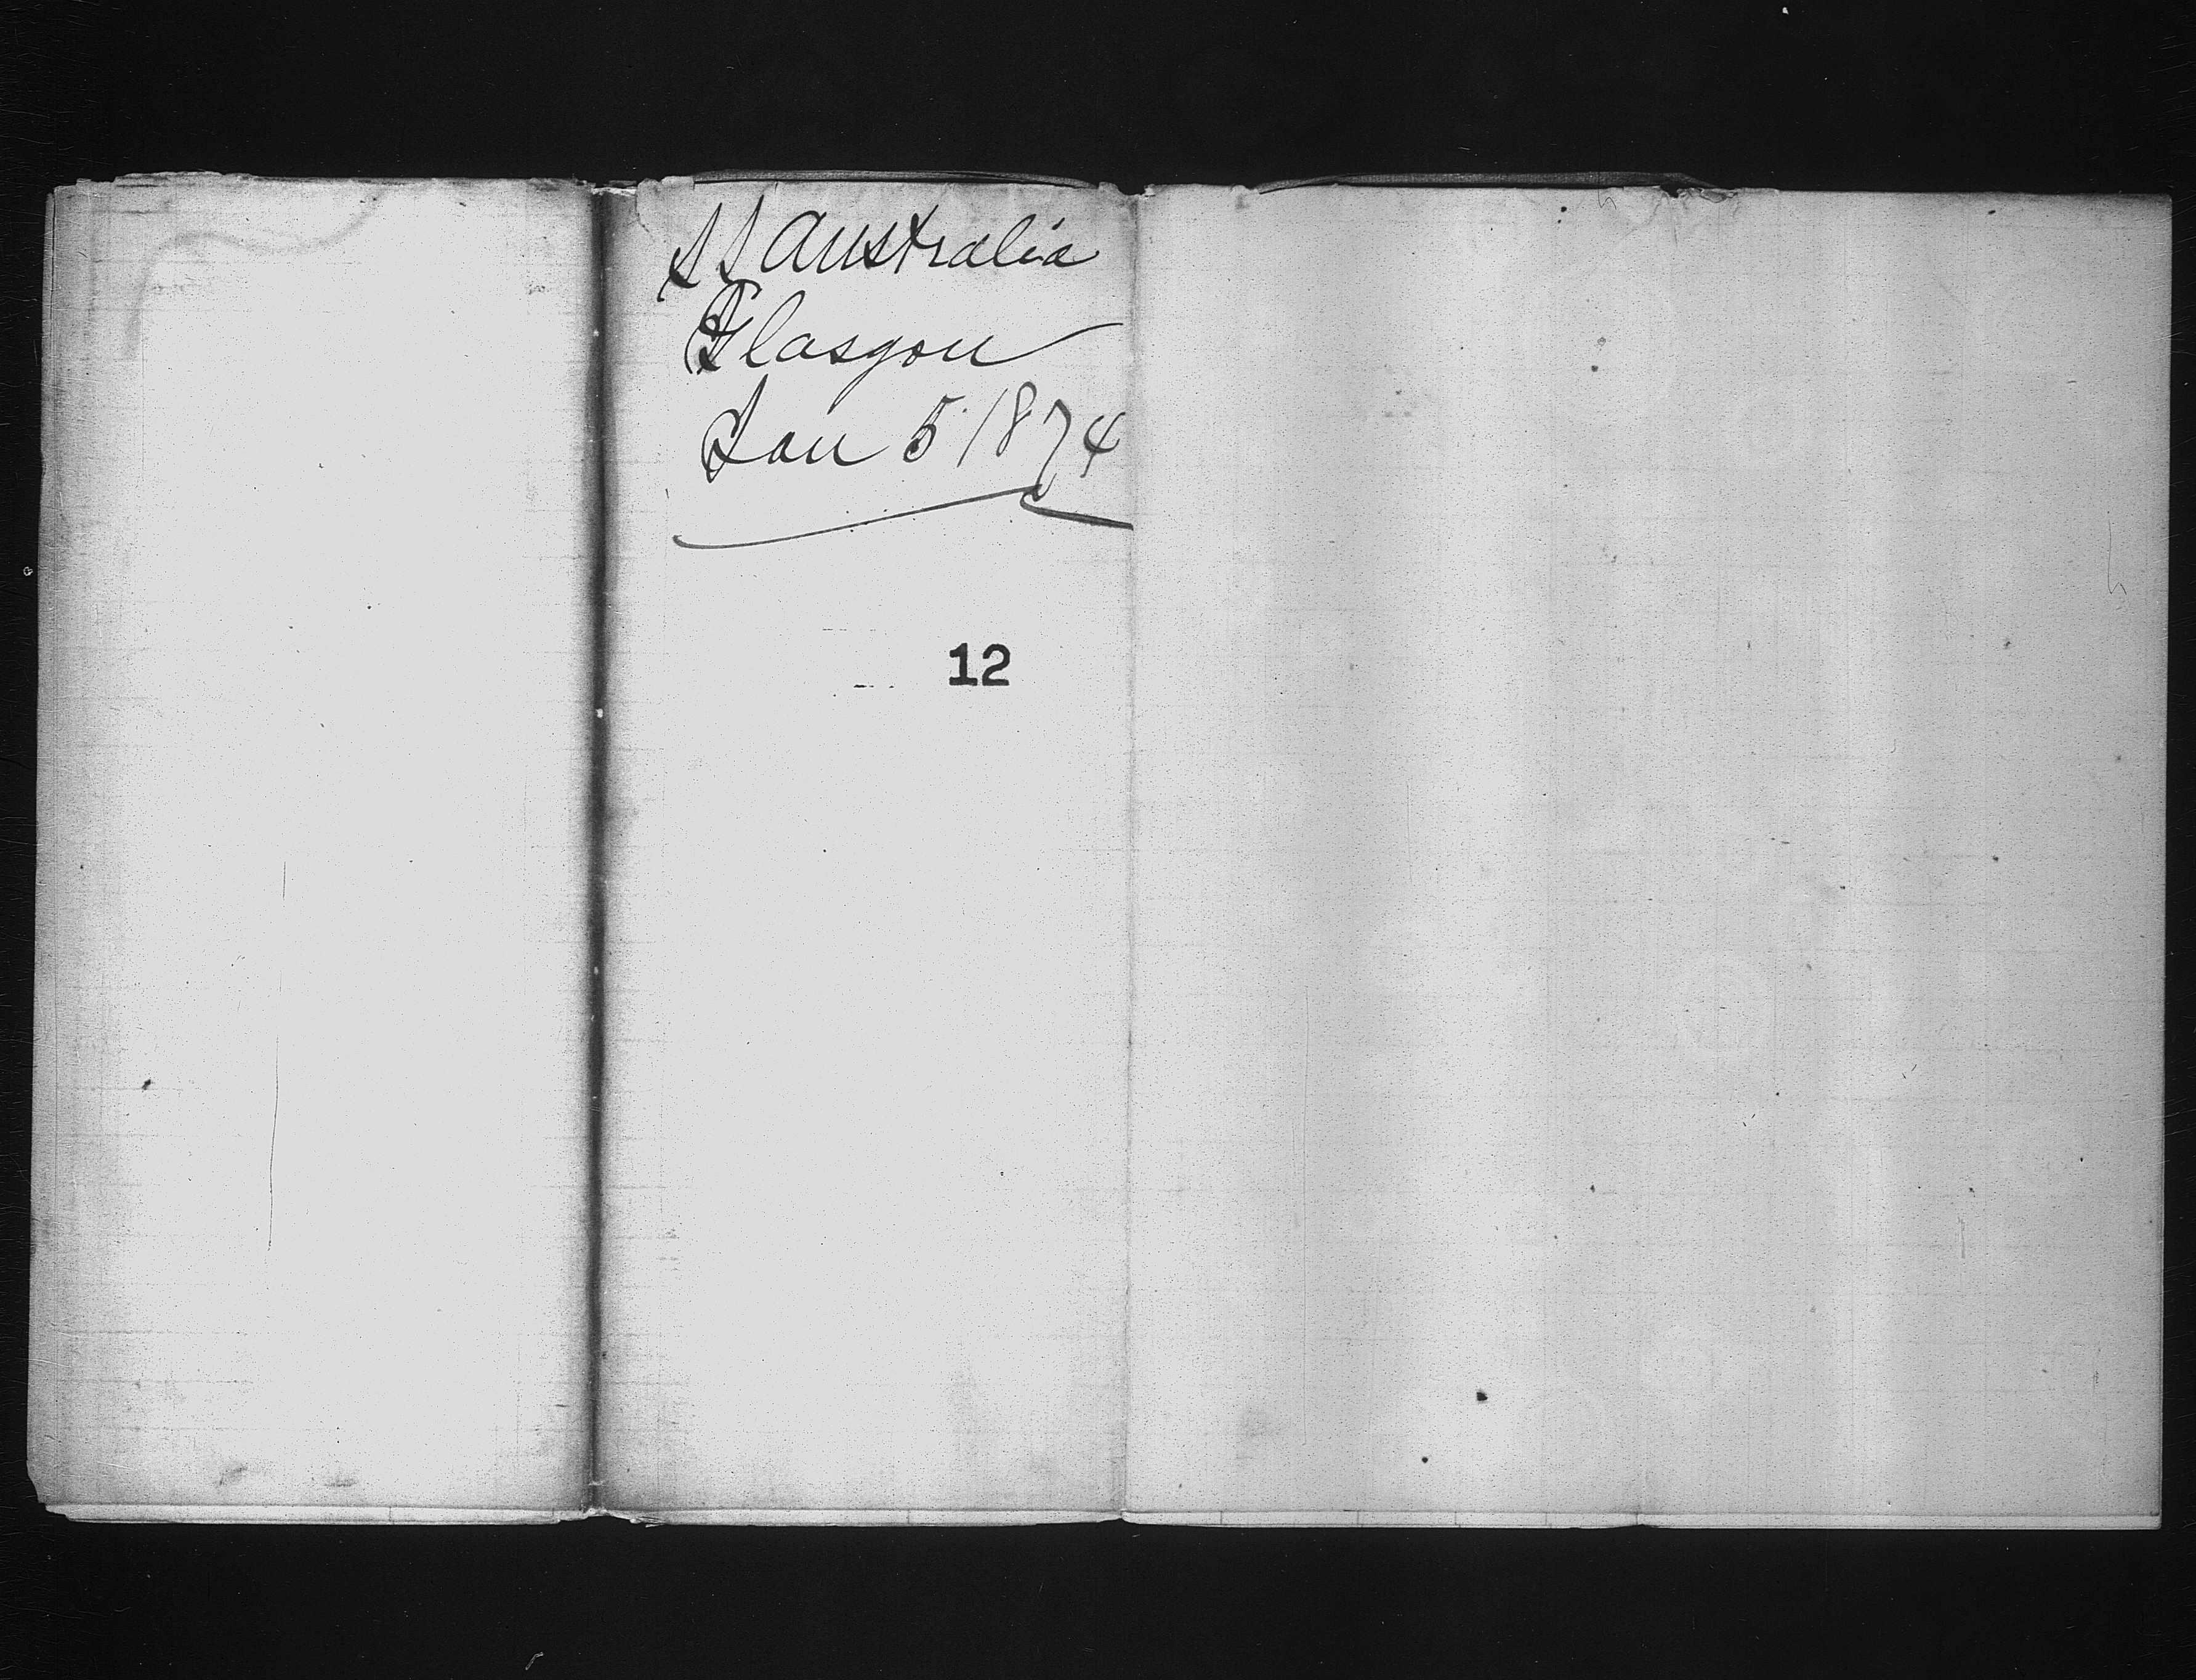 SS Australia
Glasgow
Jan 5 1874
12